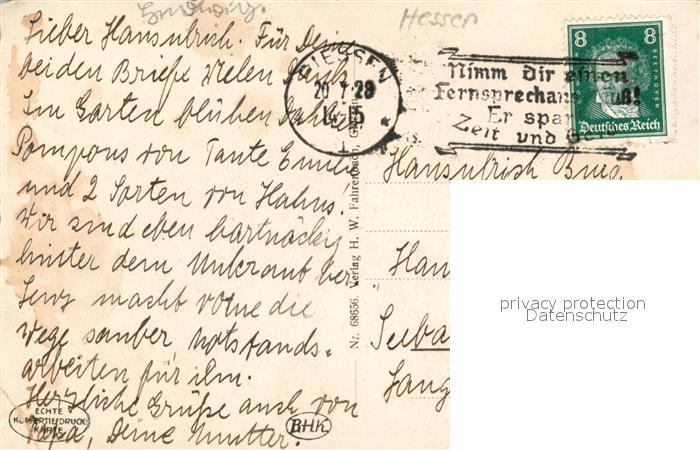 Hessen
Lieber Hansulrich. Für Deine
beiden Briefe vielen Dank
Im Garten blühen Dahlien
Pompons von Tante Emilie
und 2 Sorten von Hahns!
Wir sind eben hartnäckig
hinter dem Unkraut her.
Lenz macht vorne die
Wege sauber Notstands-
arbeiten für ihn.
Herzliche Grüße auch von
Papa, Deine Mutter.
ECHTE
KUPFERTIEFDRUCK
KARTE
BHK
GIESSEN
20.7.28
14-15
1
Nimm dir einen
Fernsprechanschluß!
Er spart
Zeit und
8 8
BEETHOVEN
Deutsches Reich
Nr. 68656. Verlag H. W. Fahrenbach,
Hansulrich
Han
Seeba
Lang
privacy protection
Datenschutz